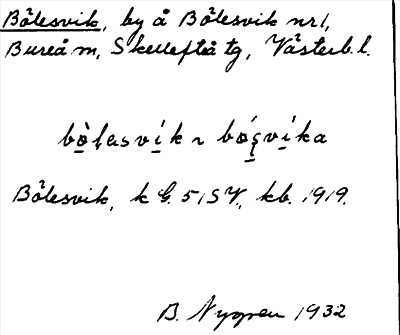 Bölesvik, by å Bölesvik nr 1,
Bureå m, Skellefteå tg, Västerb. l.
Bölesvik, k G. 51 SV, kb. 1919.
B. Nygren 1932